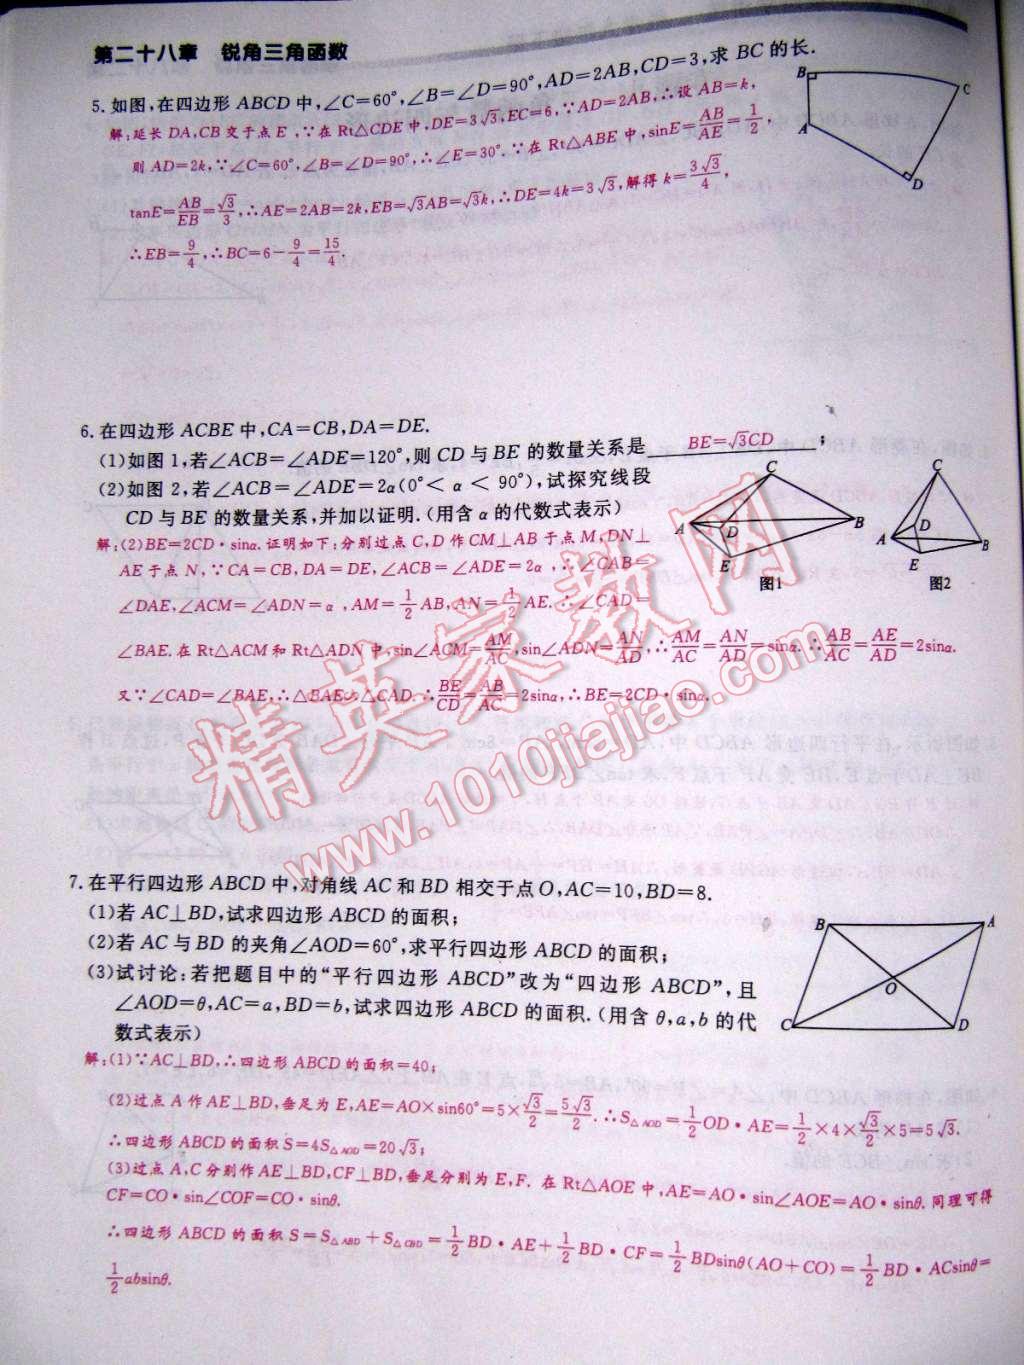 第二十八章 锐角三角函数
5.如图,在四边形 ABCD 中,∠C=60°,∠B=∠D=90°,AD=2AB,CD=3,求 BC 的长.
解:延长 DA,CB 交于点 E,∵在 Rt△CDE 中,DE=3√3,EC=6,∵AD=2AB,∴设 AB=k,
则 AD=2k,∵∠C=60°,∠B=∠D=90°,∴∠E=30°.∵在 Rt△ABE 中,sinE=AB/AE=1/2,
tanE=AB/EB=√3/3,∴AE=2AB=2k,EB=√3AB=√3k,∴DE=4k=3√3,解得 k=3√3/4,
∴EB=9/4,∴BC=6-9/4=15/4.
B
C
A
D
6.在四边形 ACBE 中,CA=CB,DA=DE.
(1)如图 1,若∠ACB=∠ADE=120°,则 CD 与 BE 的数量关系是 BE=√3CD ;
(2)如图 2,若∠ACB=∠ADE=2α(0°< α < 90°),试探究线段
CD 与 BE 的数量关系,并加以证明.(用含 α 的代数式表示)
解:(2)BE=2CD·sinα.证明如下:分别过点 C,D 作 CM⊥AB 于点 M,DN⊥
AE 于点 N,∵CA=CB,DA=DE,∠ACB=∠ADE=2α,∴∠CAB=
∠DAE,∠ACM=∠ADN=α,AM=1/2AB,AN=1/2AE.∴∠CAD=
∠BAE.在 Rt△ACM 和 Rt△ADN 中,sin∠ACM=AM/AC,sin∠ADN=AN/AD,∴AM/AC=AN/AD=sinα.∴AB/AC=AE/AD=2sinα.
又∵∠CAD=∠BAE,∴△BAE∽△CAD.∴BE/CD=AB/AC=2sinα,∴BE=2CD·sinα.
C
A
D
B
E
图1
C
A
D
B
E
图2
精英家教网
www.1010jiajiao.com
7.在平行四边形 ABCD 中,对角线 AC 和 BD 相交于点 O,AC=10,BD=8.
(1)若 AC⊥BD,试求四边形 ABCD 的面积;
(2)若 AC 与 BD 的夹角∠AOD=60°,求平行四边形 ABCD 的面积;
(3)试讨论:若把题目中的“平行四边形 ABCD”改为“四边形 ABCD”,且
∠AOD=θ,AC=a,BD=b,试求四边形 ABCD 的面积.(用含 θ,a,b 的代
数式表示)
B
A
O
C
D
解:(1)∵AC⊥BD,∴四边形 ABCD 的面积=40;
(2)过点 A 作 AE⊥BD,垂足为 E,AE=AO×sin60°=5×√3/2=5√3/2.∴S△AOD=1/2OD·AE=1/2×4×√3/2×5=5√3.
∴四边形 ABCD 的面积 S=4S△AOD=20√3;
(3)过点 A,C 分别作 AE⊥BD,CF⊥BD,垂足分别为 E,F. 在 Rt△AOE 中,AE=AO·sin∠AOE=AO·sinθ.同理可得
CF=CO·sin∠COF=CO·sinθ.
∴四边形 ABCD 的面积 S=S△ABD+S△CBD=1/2BD·AE+1/2BD·CF=1/2BDsinθ(AO+CO)=1/2BD·ACsinθ=
1/2absinθ.